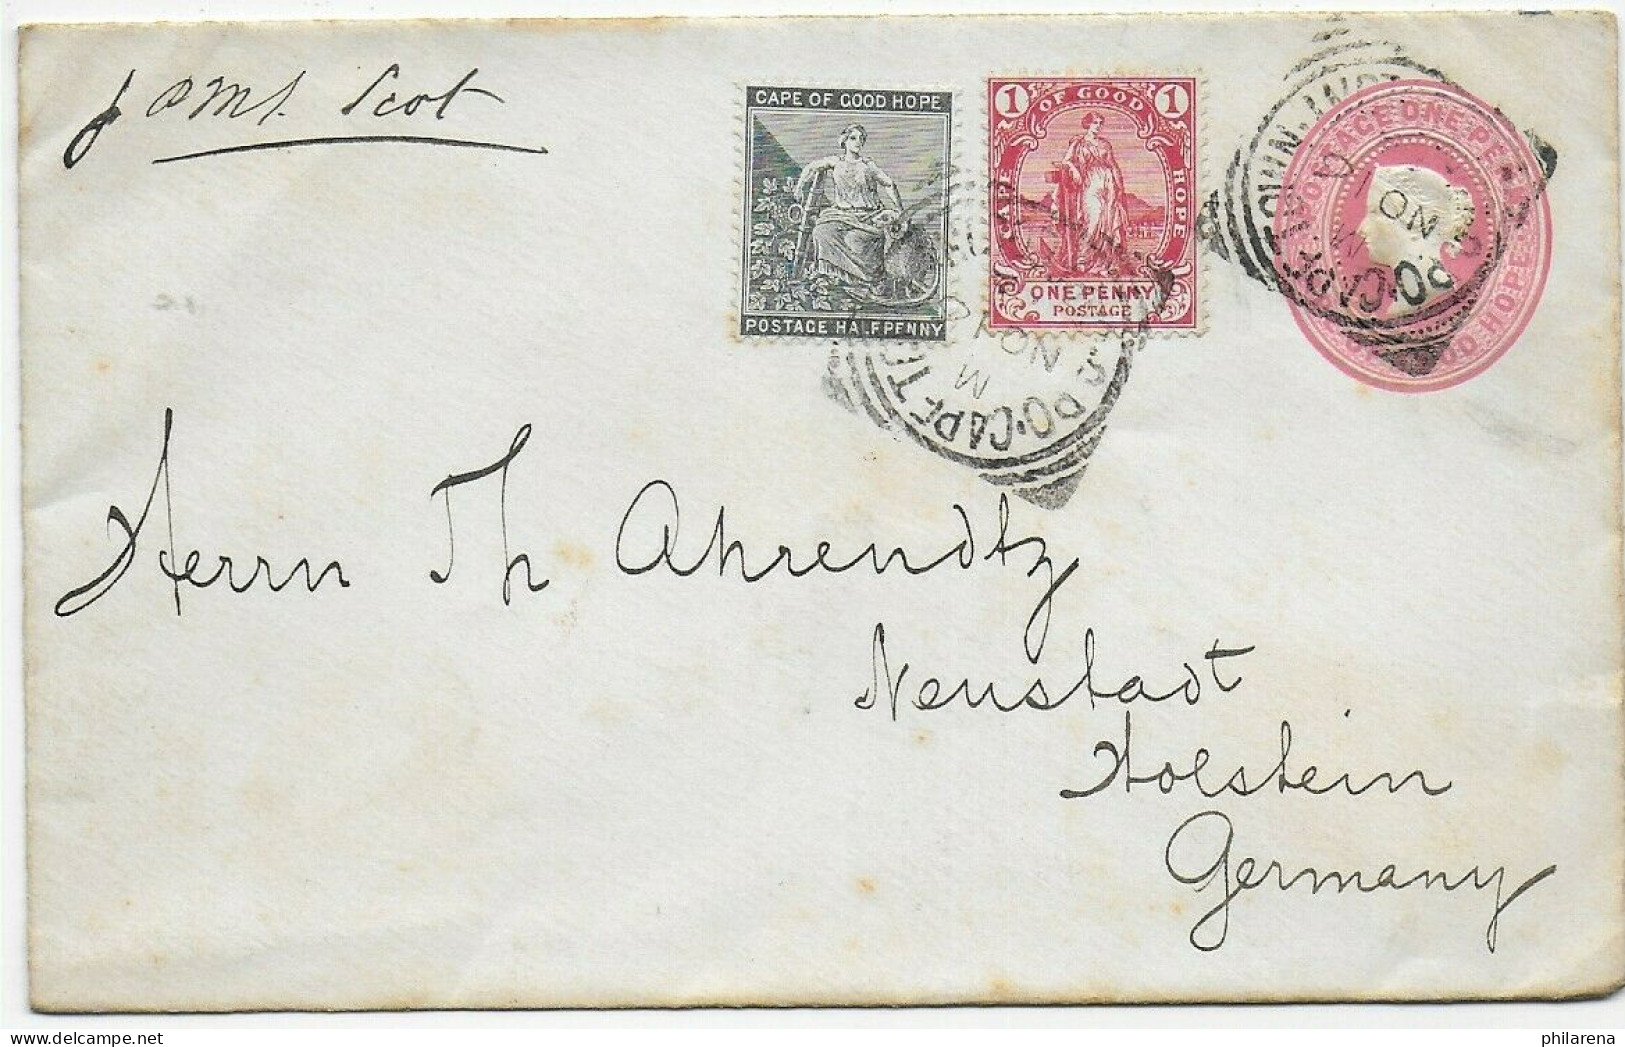 p RMS. Scot
CAPE OF GOOD HOPE
POSTAGE HALFPENNY
1 OF GOOD 1
CAPE HOPE
ONE PENNY
POSTAGE
POSTAGE ONE PENNY
GOOD HOPE
G.P.O. CAPE TOWN
NO 1
M
G.P.O. CAPE TOWN
NO 1
M
Herrn Th Ahrendtz
Neustadt
Holstein
Germany
philarena.com